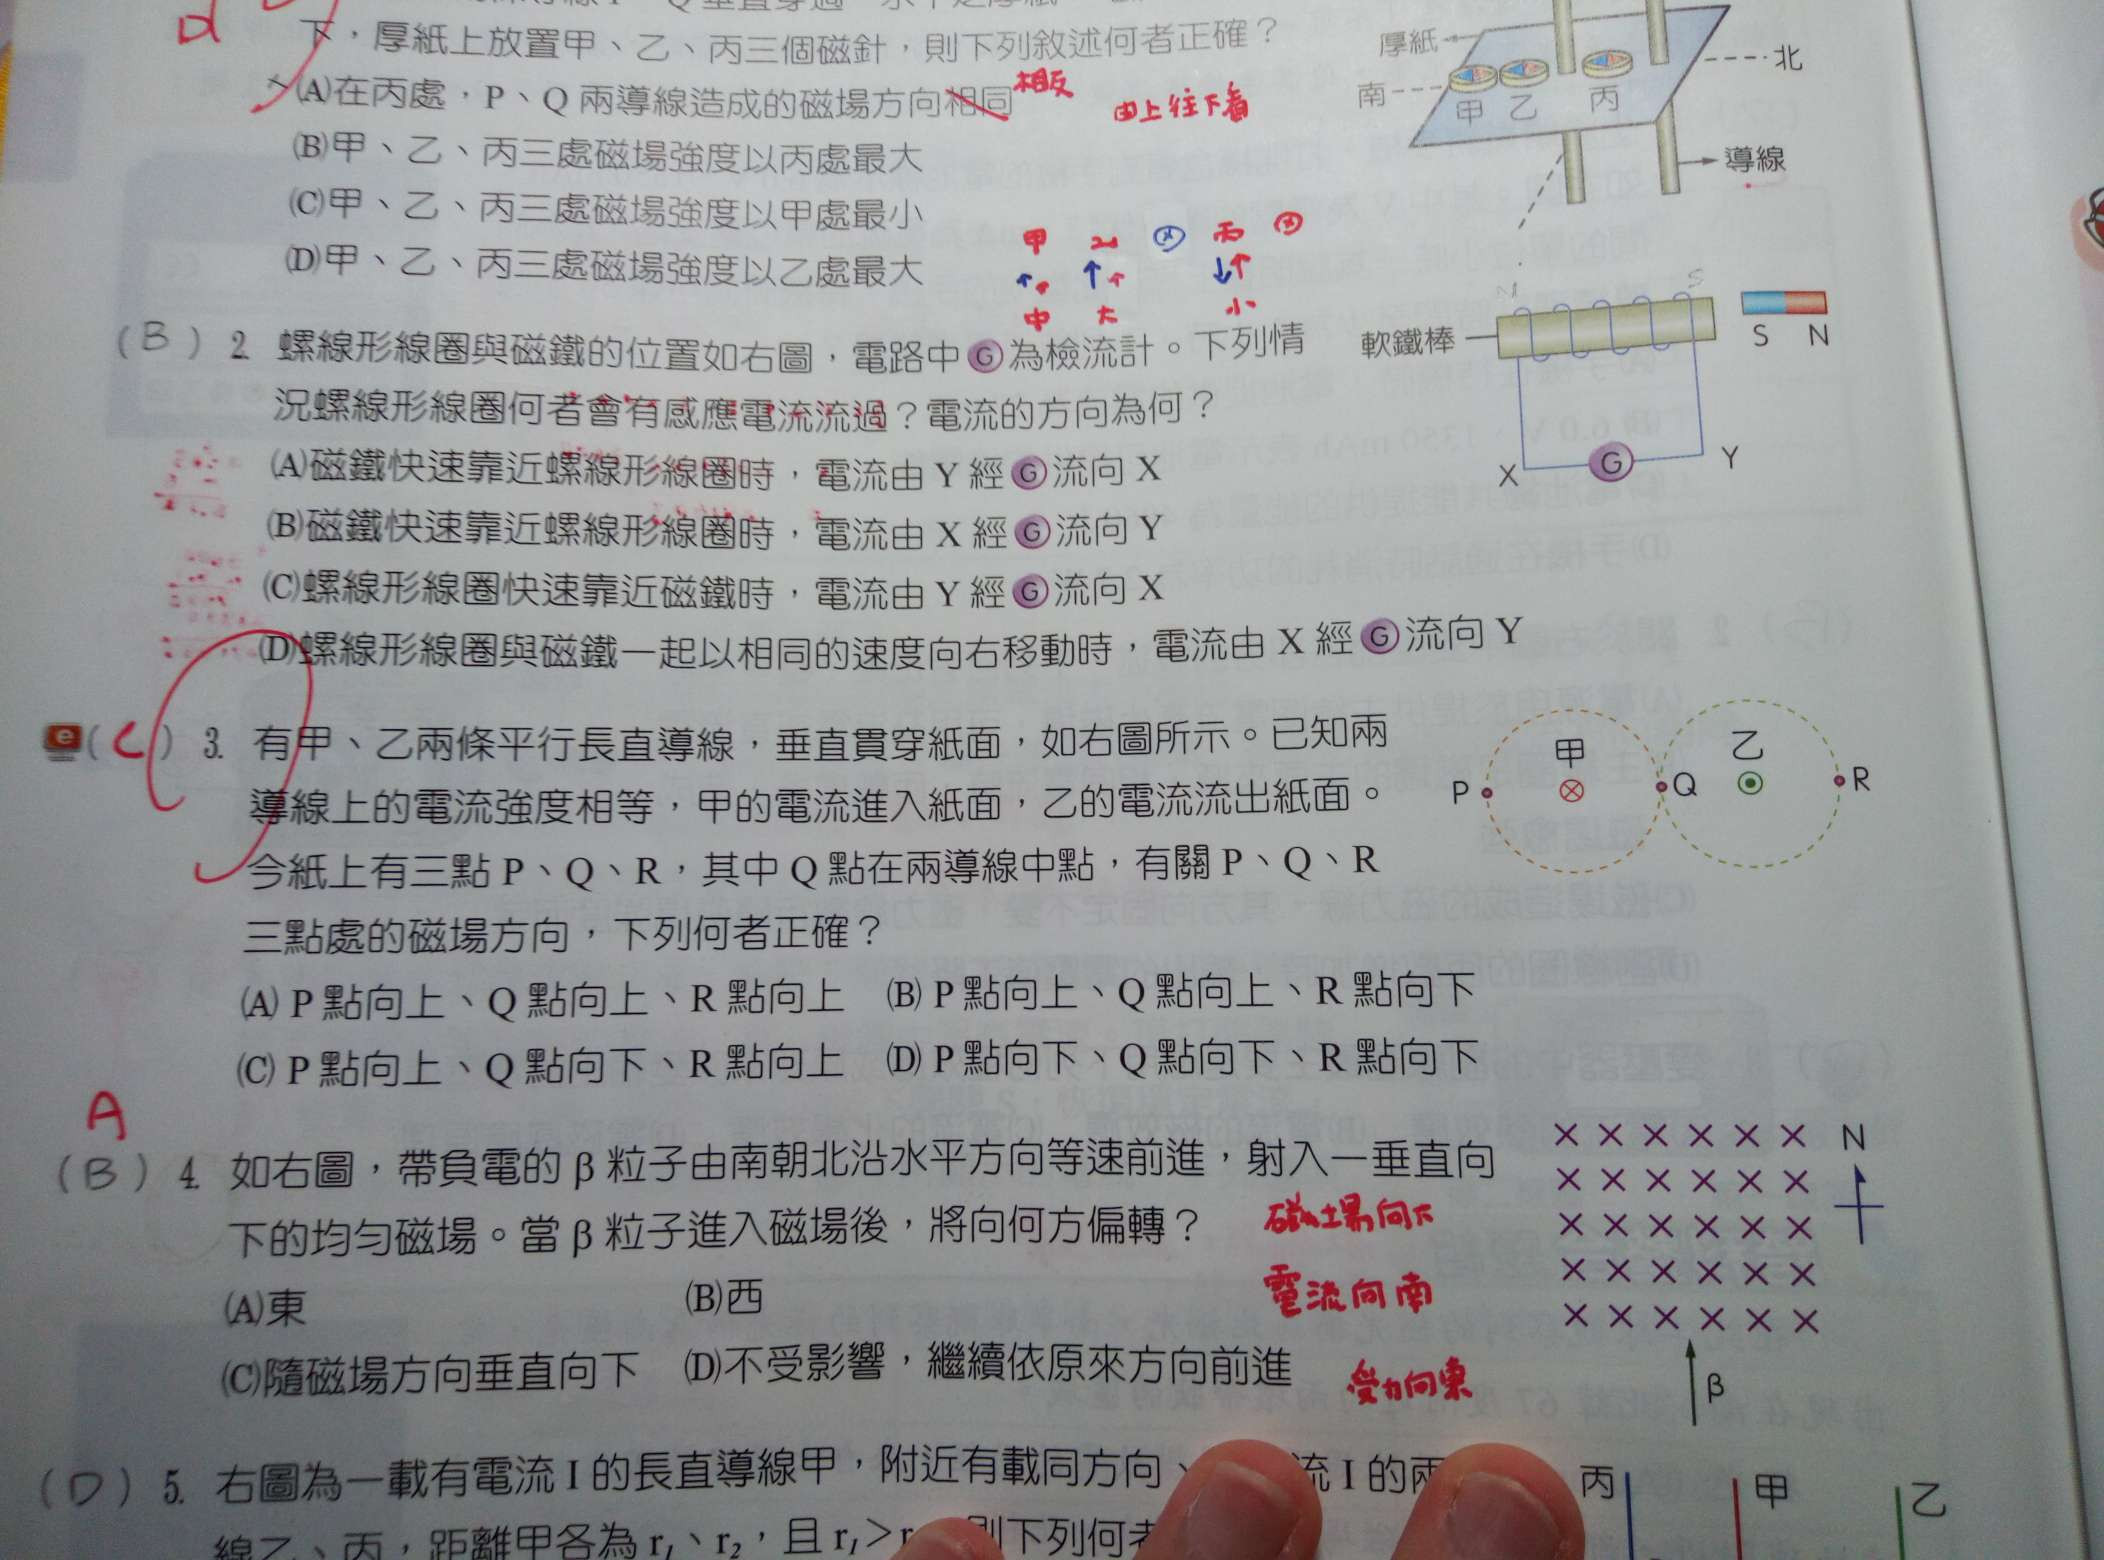 d
下，厚紙上放置甲、乙、丙三個磁針，則下列敘述何者正確？
(A)在丙處，P、Q 兩導線造成的磁場方向相同
相反
由上往下看
(B)甲、乙、丙三處磁場強度以丙處最大
(C)甲、乙、丙三處磁場強度以甲處最小
(D)甲、乙、丙三處磁場強度以乙處最大
厚紙
北
南
甲 乙 丙
導線
甲 乙 丙
中 大 小
(B) 2. 螺線形線圈與磁鐵的位置如右圖，電路中 G 為檢流計。下列情
況螺線形線圈何者會有感應電流流過？電流的方向為何？
(A)磁鐵快速靠近螺線形線圈時，電流由 Y 經 G 流向 X
(B)磁鐵快速靠近螺線形線圈時，電流由 X 經 G 流向 Y
(C)螺線形線圈快速靠近磁鐵時，電流由 Y 經 G 流向 X
(D)螺線形線圈與磁鐵一起以相同的速度向右移動時，電流由 X 經 G 流向 Y
N S
軟鐵棒
S N
X G Y
e (C) 3. 有甲、乙兩條平行長直導線，垂直貫穿紙面，如右圖所示。已知兩
導線上的電流強度相等，甲的電流進入紙面，乙的電流流出紙面。
今紙上有三點 P、Q、R，其中 Q 點在兩導線中點，有關 P、Q、R
三點處的磁場方向，下列何者正確？
(A) P 點向上、Q 點向上、R 點向上 (B) P 點向上、Q 點向上、R 點向下
(C) P 點向上、Q 點向下、R 點向上 (D) P 點向下、Q 點向下、R 點向下
甲 乙
P Q R
A
(B) 4. 如右圖，帶負電的 β 粒子由南朝北沿水平方向等速前進，射入一垂直向
下的均勻磁場。當 β 粒子進入磁場後，將向何方偏轉？
(A)東 (B)西
(C)隨磁場方向垂直向下 (D)不受影響，繼續依原來方向前進
磁場向下
電流向南
受力向東
× × × × × × N
× × × × × ×
× × × × × ×
× × × × × ×
× × × × × ×
β
(D) 5. 右圖為一載有電流 I 的長直導線甲，附近有載同方向、
流 I 的兩
線乙、丙，距離甲各為 r₁、r₂，且 r₁＞r
則下列何者
丙 甲 乙